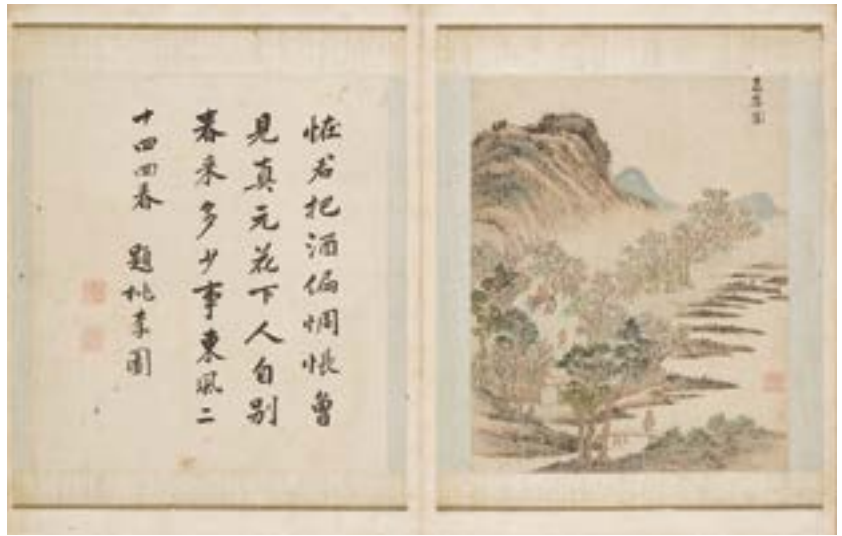 恠君把酒偏惆悵曾
見真元花下人自別
春来多少事東風二
十四回春　題桃李圖